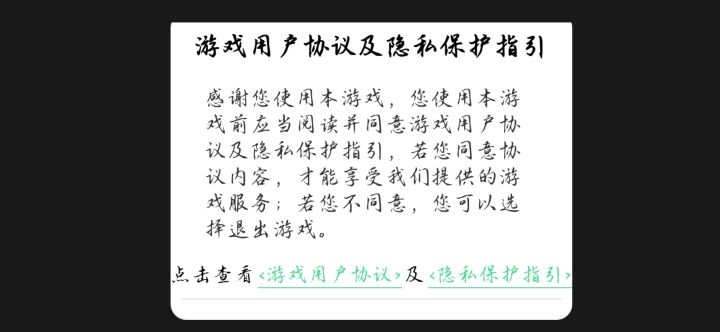 游戏用户协议及隐私保护指引
感谢您使用本游戏，您使用本游
戏前应当阅读并同意游戏用户协
议及隐私保护指引，若您同意协
议内容，才能享受我们提供的游
戏服务；若您不同意，您可以选
择退出游戏。
点击查看<游戏用户协议>及<隐私保护指引>